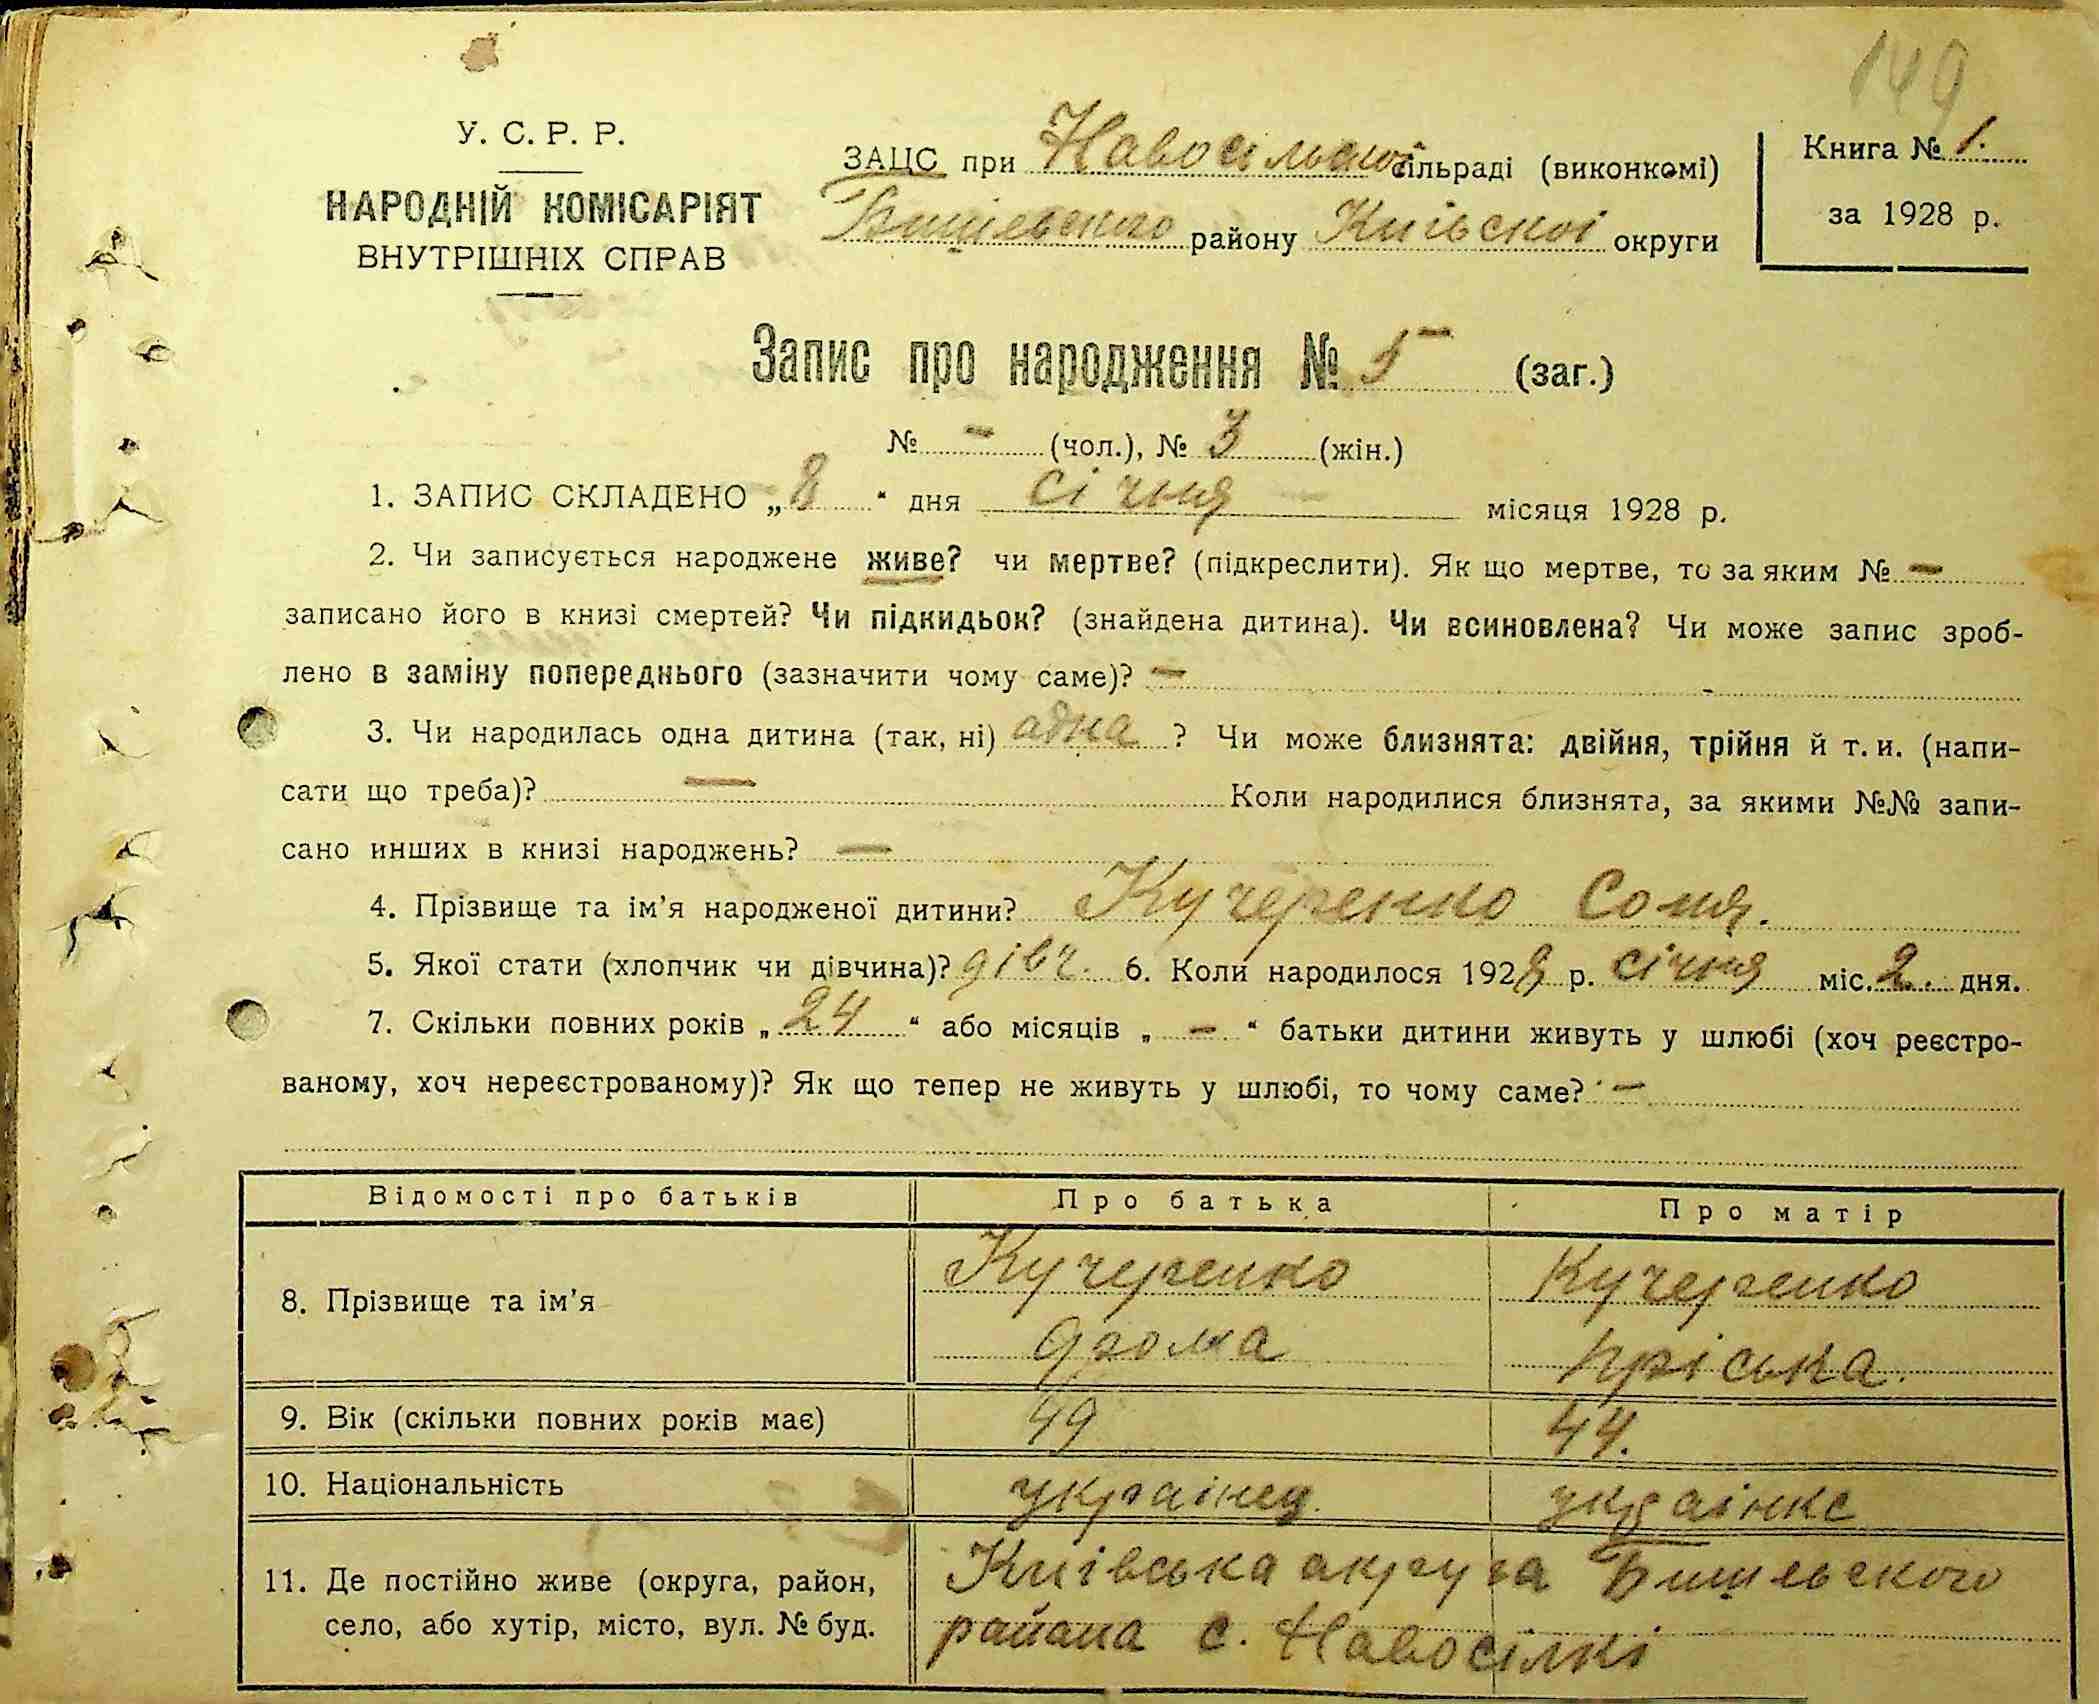 149
У. С. Р. Р.
НАРОДНІЙ КОМІСАРІЯТ
ВНУТРІШНІХ СПРАВ
ЗАЦС при Навосільскої сільраді (виконкомі)
Бишевского району Київскої округи
Книга № 1.
за 1928 р.
Запис про народження № 5 (заг.)
№ — (чол.), № 3 (жін.)
1. ЗАПИС СКЛАДЕНО „8“ дня січня місяця 1928 р.
2. Чи записується народжене живе? чи мертве? (підкреслити). Як що мертве, то за яким № —
записано його в книзі смертей? Чи підкидьок? (знайдена дитина). Чи всиновлена? Чи може запис зроб-
лено в заміну попереднього (зазначити чому саме)? —
3. Чи народилась одна дитина (так, ні) адна ? Чи може близнята: двійня, трійня й т. и. (напи-
сати що треба)? — Коли народилися близнята, за якими №№ запи-
сано инших в книзі народжень? —
4. Прізвище та ім'я народженої дитини? Кучеренко Соня.
5. Якої стати (хлопчик чи дівчина)? дівч. 6. Коли народилося 1928 р. січня міс. 2. дня.
7. Скільки повних років „24“ або місяців „—“ батьки дитини живуть у шлюбі (хоч реєстро-
ваному, хоч нереєстрованому)? Як що тепер не живуть у шлюбі, то чому саме? —
Відомості про батьків Про батька Про матір
8. Прізвище та ім'я Кучеренко Кучеренко
Пріська.
9. Вік (скільки повних років має) 49 44.
10. Національність українец украінка
11. Де постійно живе (округа, район, Київська акруга Бишевского
село, або хутір, місто, вул. № буд. района с. Навосілкі